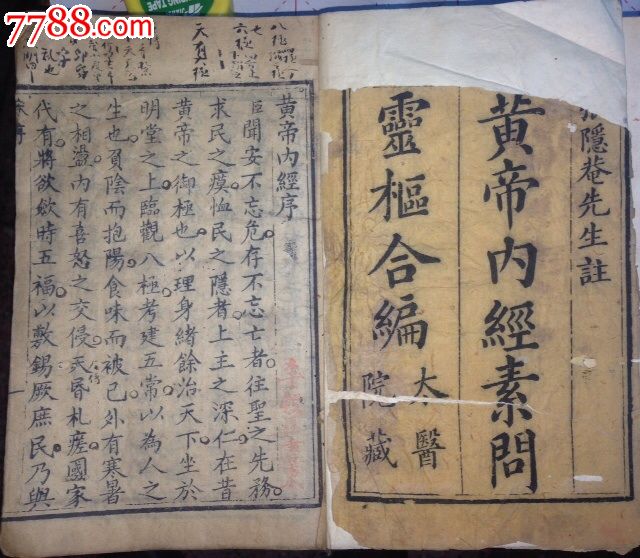 7788.com
PING TAPE
隱菴先生註
黄帝内經素問
靈樞合編
太醫
院藏
八極
七
六極
天有極
黄帝内經序
臣聞安不忘危存不忘亡者往聖之先務
求民之瘼恤民之隱者上主之深仁在昔
黄帝之御極也以理身緒餘治天下坐於
明堂之上臨觀八極考建五常以為人之
生也負陰而抱陽食味而被色外有寒暑
之相盪内有喜怒之交侵夭昏札瘥國家
代有將欲斂時五福以敷錫厥庶民乃與
序